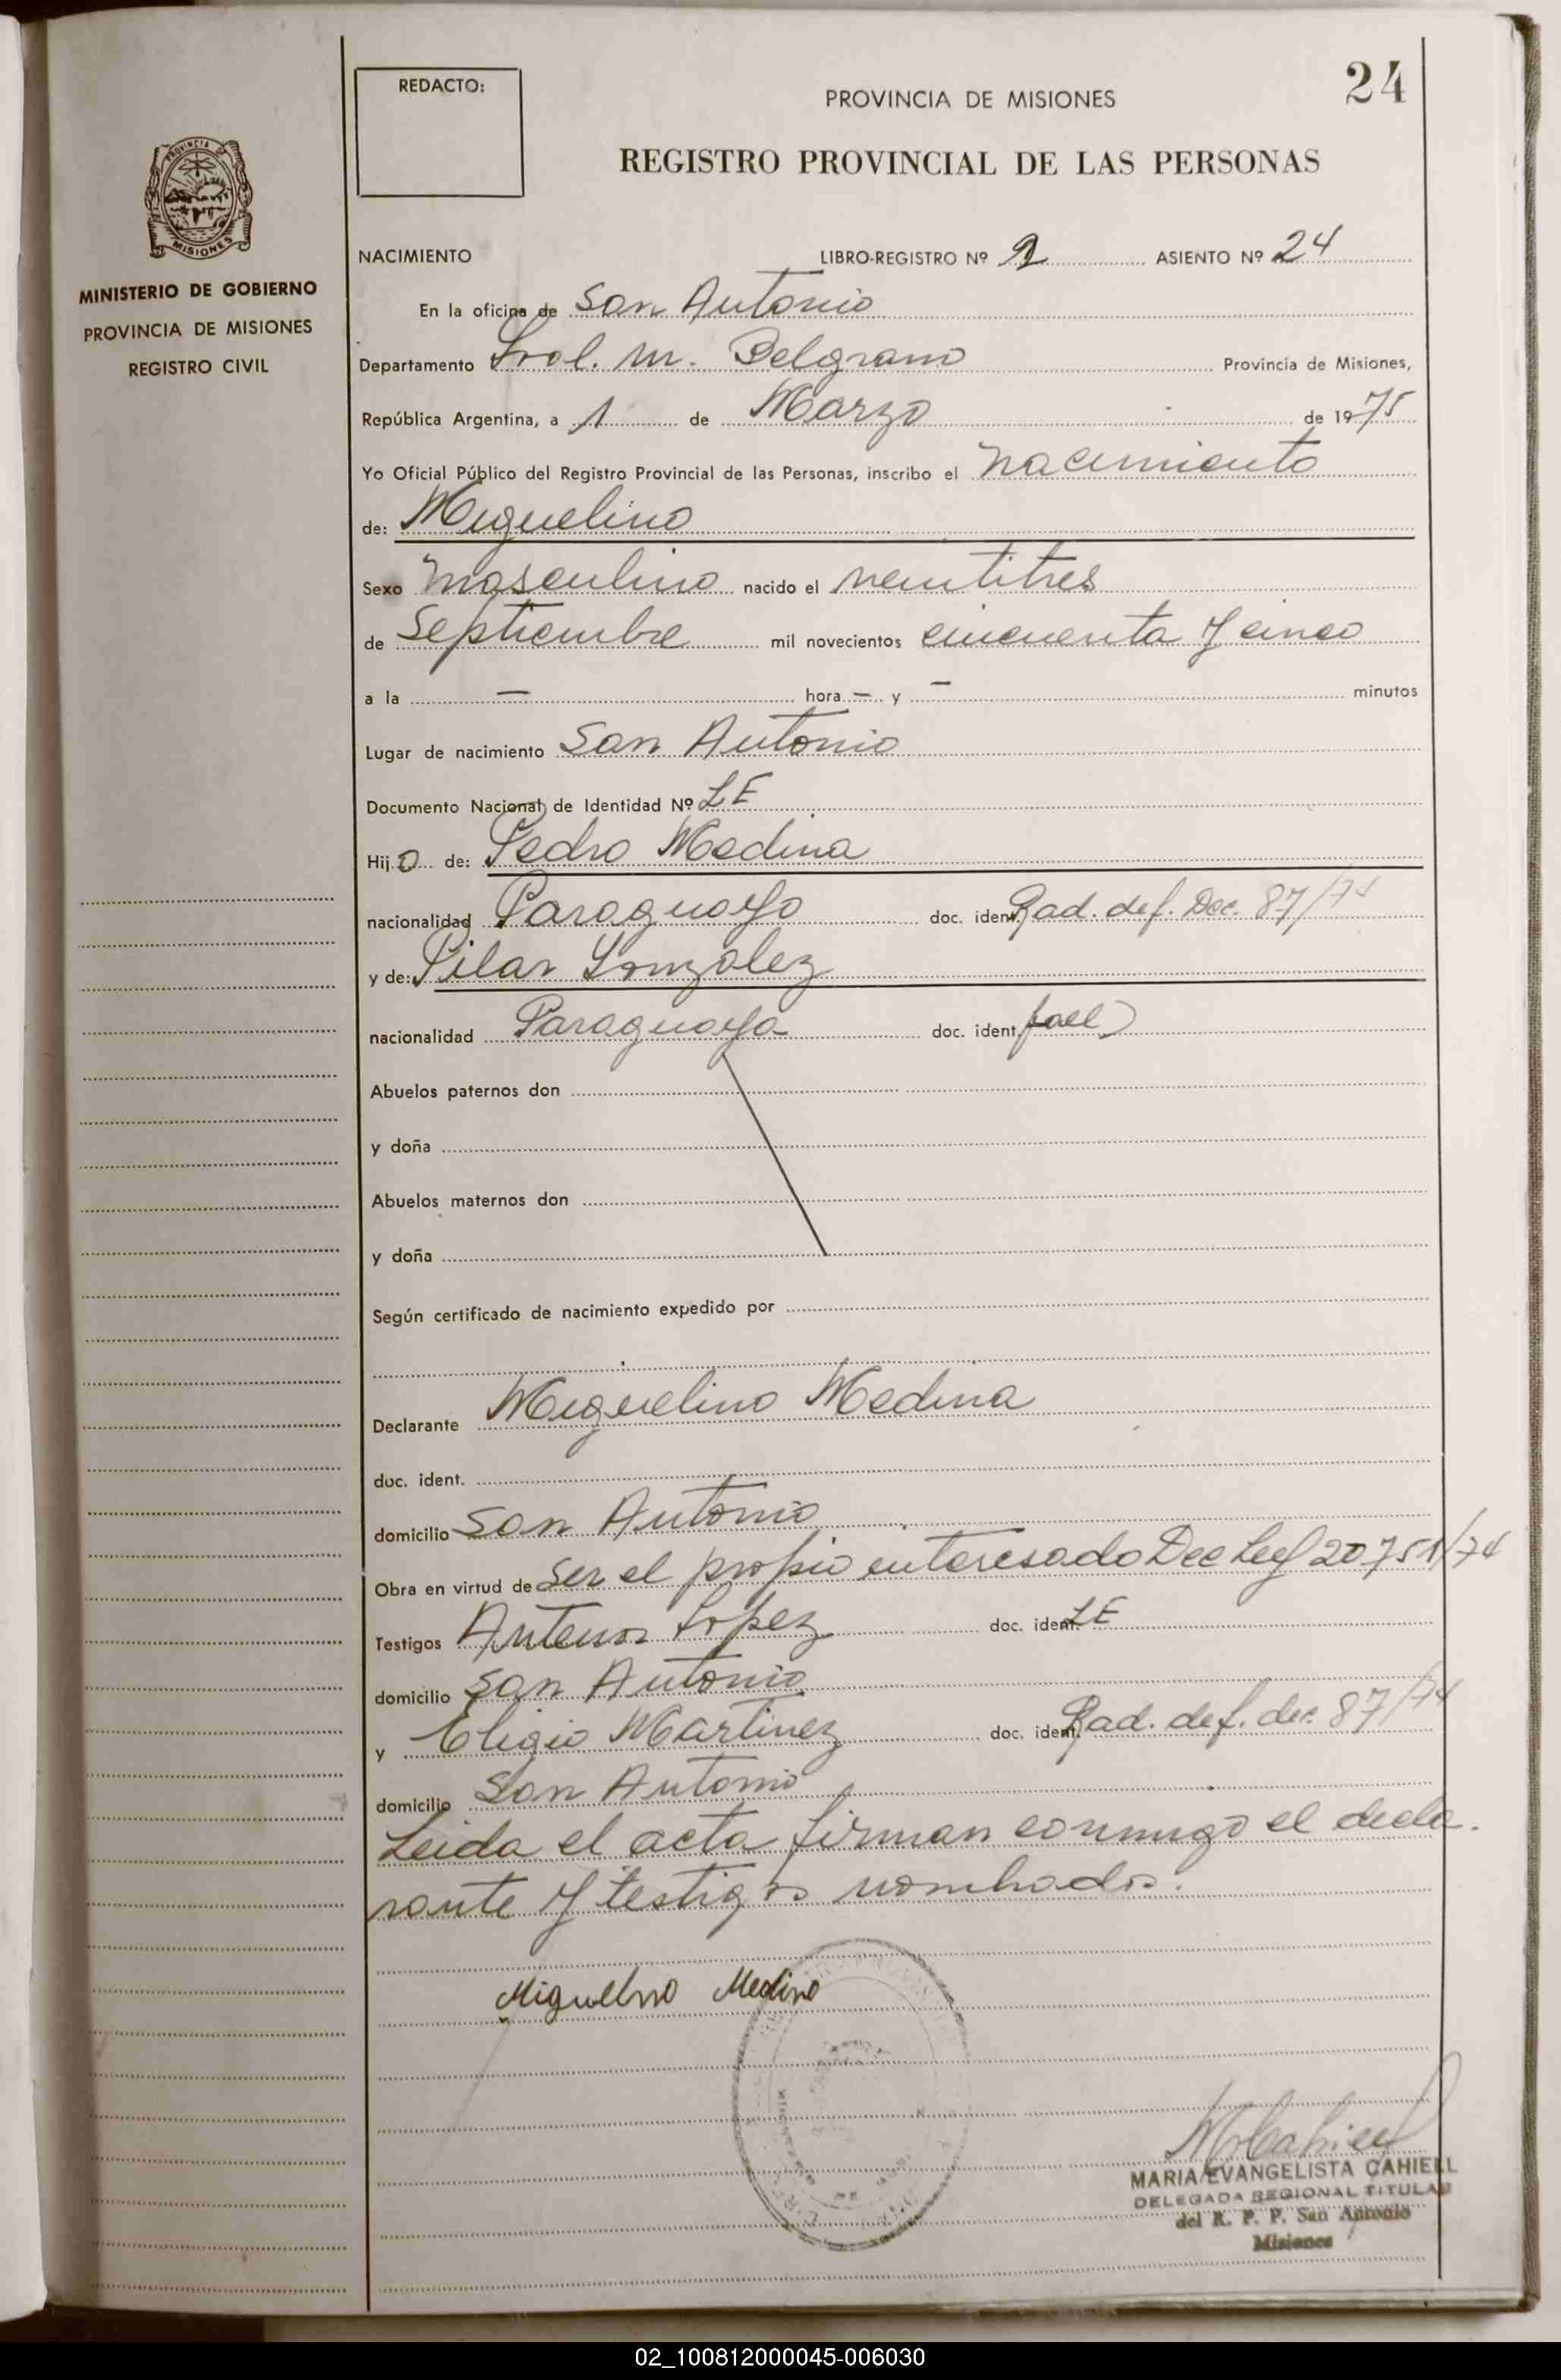 24
REDACTO:
PROVINCIA DE MISIONES
REGISTRO PROVINCIAL DE LAS PERSONAS
PROVINCIA
MISIONES
MINISTERIO DE GOBIERNO
PROVINCIA DE MISIONES
REGISTRO CIVIL
NACIMIENTO LIBRO-REGISTRO Nº ASIENTO Nº 24
En la oficina de San Antonio
Departamento Gral. M. Belgrano Provincia de Misiones,
República Argentina, a 1 de Marzo de 1975
Yo Oficial Público del Registro Provincial de las Personas, inscribo el nacimiento
de: Miguelino
Sexo masculino nacido el veintitres
de Septiembre mil novecientos cincuenta y cinco
a la — hora — y — minutos
Lugar de nacimiento San Antonio
Documento Nacional de Identidad Nº LE
Hijo de: Pedro Medina
nacionalidad Paraguayo doc. ident. Rad. def. Dec. 87/74
y de: Pilar Gonzalez
nacionalidad Paraguaya doc. ident.
Abuelos paternos don
y doña
Abuelos maternos don
y doña
Según certificado de nacimiento expedido por
Declarante Miguelino Medina
doc. ident.
domicilio San Antonio
Obra en virtud de ser el propio interesado Dec Ley 20751/74
Testigos Antenor Lopez doc. ident. LE
domicilio San Antonio
y Eligio Martinez doc. ident. Rad. def. dec. 87/74
domicilio San Antonio
Leida el acta firman conmigo el decla-
rante y testigos nombrados.
Miguelino Medina
MARIA EVANGELISTA CAHIELL
DELEGADA REGIONAL TITULAR
del R. P. P. San Antonio
Misiones
02_100812000045-006030